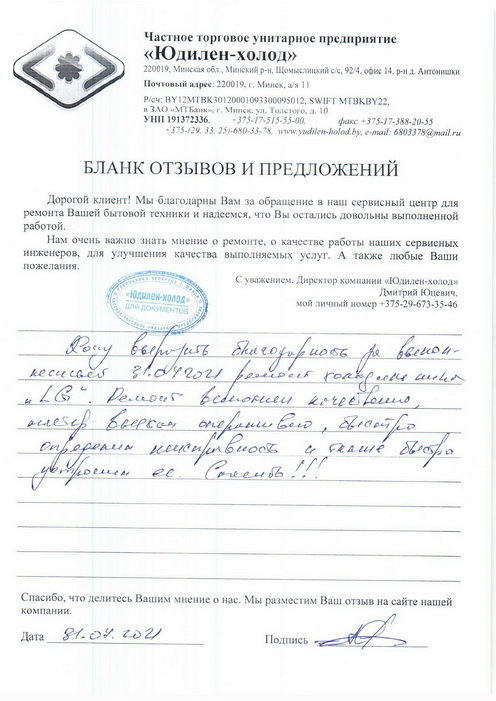 Частное торговое унитарное предприятие
«Юдилен-холод»
220019, Минская обл., Минский р-н, Щомыслицкий с/с, 92/4, офис 14, р-н д. Антонишки
Почтовый адрес: 220019, г. Минск, а/я 11
Р/сч: BY12MTBK30120001093300095012, SWIFT MTBKBY22,
в ЗАО «МТБанк», г. Минск, ул. Толстого, д. 10
УНП 191372336, +375-17-515-55-00, факс +375-17-388-20-55
+375-(29, 33, 25)-680-33-78, www.yudilen-holod.by, e-mail: 6803378@mail.ru
БЛАНК ОТЗЫВОВ И ПРЕДЛОЖЕНИЙ
Дорогой клиент! Мы благодарны Вам за обращение в наш сервисный центр для
ремонта Вашей бытовой техники и надеемся, что Вы остались довольны выполненной
работой.
Нам очень важно знать мнение о ремонте, о качестве работы наших сервисных
инженеров, для улучшения качества выполняемых услуг. А также любые Ваши
пожелания.
С уважением, Директор компании «Юдилен-холод»
Дмитрий Юцевич,
мой личный номер +375-29-673-35-46
«ЮДИЛЕН-ХОЛОД»
ДЛЯ ДОКУМЕНТОВ
Хочу выразить благодарность за выпол-
31.04.2021 ремонт холодильника
"LG". Ремонт выполнен качественно,
мастер выехал оперативно, быстро
определил неисправность и также быстро
устранил ее. Спасибо!!!
Спасибо, что делитесь Вашим мнение о нас. Мы разместим Ваш отзыв на сайте нашей
компании.
Дата 31.04.2021 Подпись